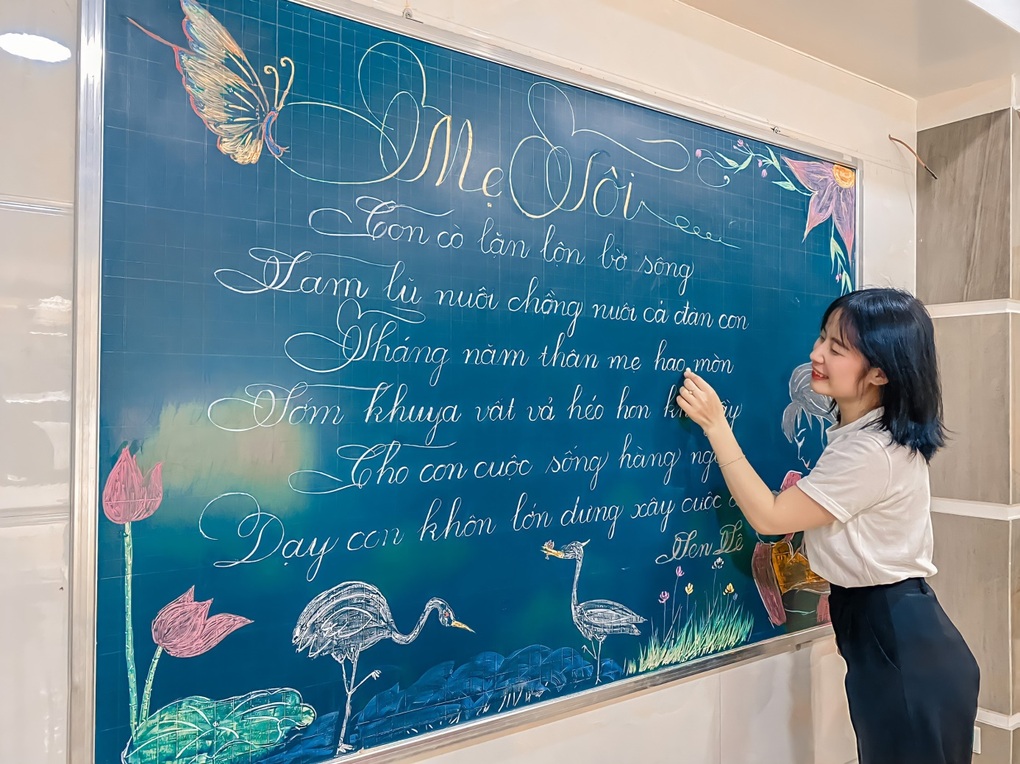 Mẹ Tôi
Con cò lặn lộn bờ sông
Lam lũ nuôi chồng nuôi cả đàn con
Tháng năm thân mẹ hao mòn
Sớm khuya vất vả héo hon
Cho con cuộc sống hàng
Dạy con khôn lớn dựng xây cuộc
Lê